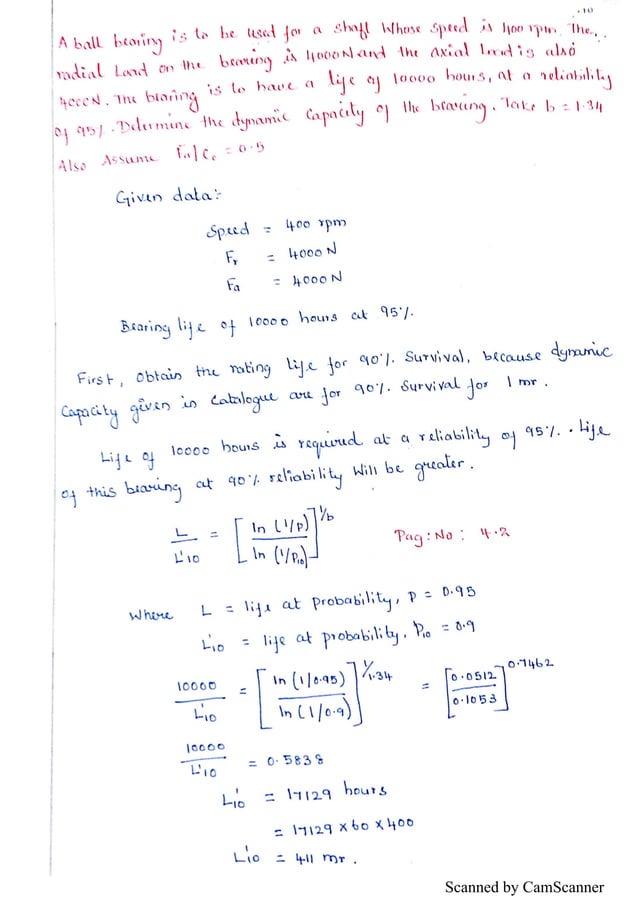 A ball bearing is to be used for a shaft whose speed is 400 rpm. The
radial Load on the bearing is 4000N and the axial Load is also
4000N. The bearing is to have a life of 10000 hours, at a reliability
of 95%. Determine the dynamic Capacity of the bearing. Take b = 1.34
Also Assume Fa/Co = 0.5
Given data:-
Speed = 400 rpm
Fr = 4000 N
Fa = 4000 N
Bearing life of 10000 hours at 95%.
First, obtain the rating life for 90% Survival, because dynamic
Capacity given in Catalogue are for 90% Survival for 1 mr.
Life of 10000 hours is required at a reliability of 95%. Life
of this bearing at 90% reliability Will be greater.
L/L'10 = [ln (1/P)/ln (1/P10)]^1/b Pag: No: 4.2
Where L = life at probability, P = 0.95
L'10 = life at probability, P10 = 0.9
10000/L'10 = [ln (1/0.95)/ln (1/0.9)]^1/1.34 = [0.0512/0.1053]^0.7462
10000/L'10 = 0.5838
L'10 = 17129 hours
= 17129 × 60 × 400
L'10 = 411 mr.
Scanned by CamScanner